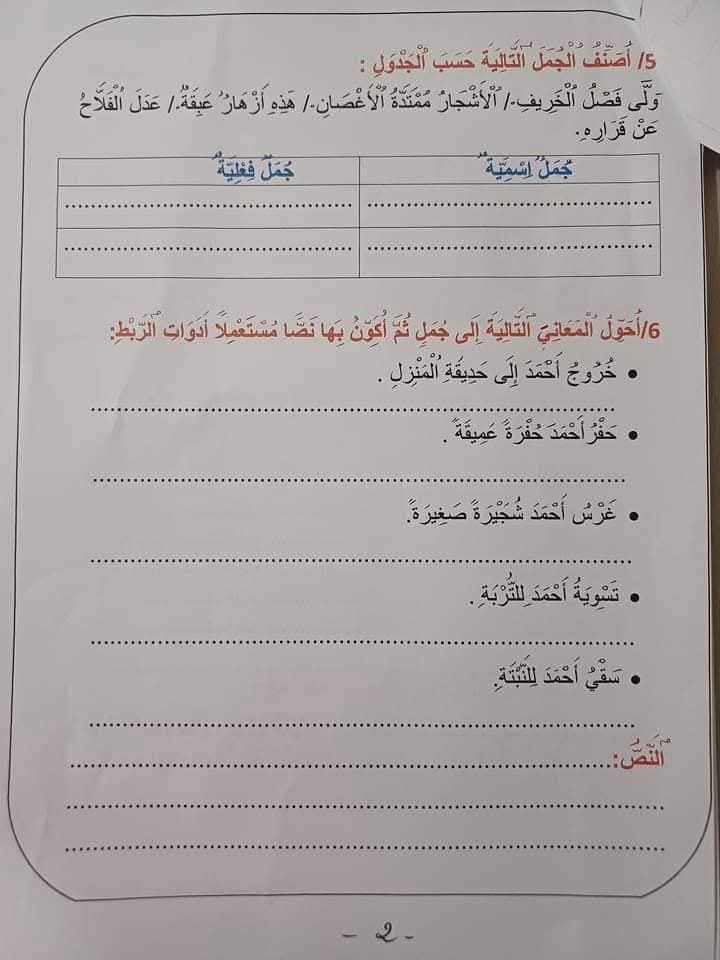 5/ أُصَنِّفُ الْجُمَلَ التَّالِيَةَ حَسَبَ الْجَدْوَلِ :
وَلَّى فَصْلُ الْخَرِيفِ-/ الْأَشْجَارُ مُمْتَدَّةُ الْأَغْصَانِ-/ هَذِهِ أَزْهَارٌ عَبِقَةٌ./ عَدَلَ الْفَلَّاحُ
عَنْ قَرَارِهِ.
جُمَلٌ اِسْمِيَّةٌ جُمَلٌ فِعْلِيَّةٌ
6/أُحَوِّلُ الْمَعَانِيَ التَّالِيَةَ إِلَى جُمَلٍ ثُمَّ أُكَوِّنُ بِهَا نَصًّا مُسْتَعْمِلًا أَدَوَاتِ الرَّبْطِ:
• خُرُوجُ أَحْمَدَ إِلَى حَدِيقَةِ الْمَنْزِلِ .
• حَفْرُ أَحْمَدَ حُفْرَةً عَمِيقَةً .
• غَرْسُ أَحْمَدَ شُجَيْرَةً صَغِيرَةً.
• تَسْوِيَةُ أَحْمَدَ لِلتُّرْبَةِ .
• سَقْيُ أَحْمَدَ لِلنَّبْتَةِ.
النَّصُّ:
- 2 -